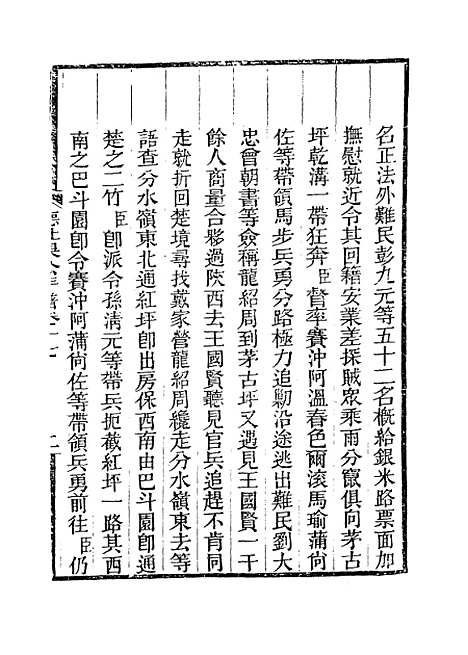 名正法外難民彭九元等五十二名槪給銀米路票面加
撫慰就近令其回籍安業差探賊眾乘雨分竄俱向茅古
坪乾溝一帶狂奔臣督率賽沖阿溫春色爾滾馬瑜蒲尙
佐等帶領馬步兵勇分路極力追勦沿途逃出難民劉大
忠曾朝書等僉稱龍紹周到茅古坪又遇見王國賢一干
餘人商量合夥過陝西去王國賢聽見官兵追趕不肯同
走就折回楚境尋找戴家營龍紹周纔走分水嶺東去等
語查分水嶺東北通紅坪卽出房保西南由巴斗園卽通
楚之二竹臣卽派令孫淸元等帶兵扼截紅坪一路其西
南之巴斗園卽令賽沖阿蒲尙佐等帶領兵勇前往臣仍